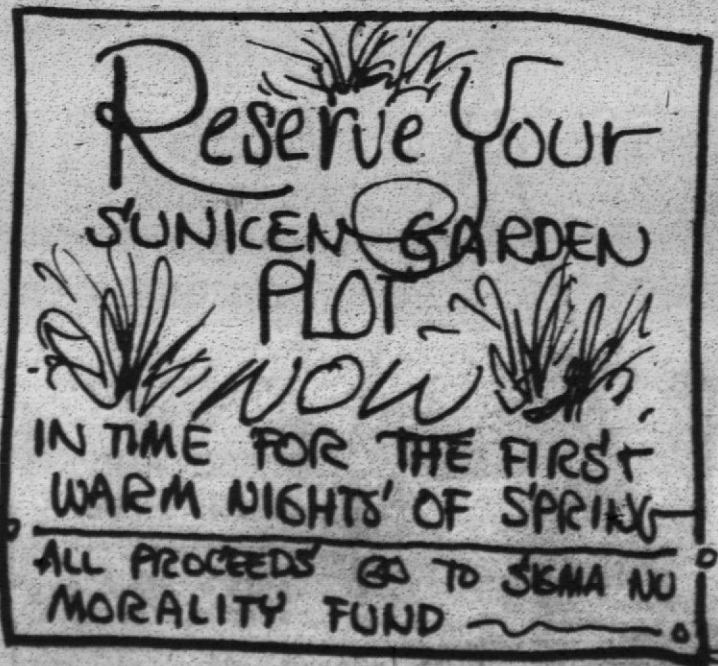 Reserve Your
SUNKEN GARDEN
PLOT
NOW
IN TIME FOR THE FIRST
WARM NIGHTS OF SPRING
ALL PROCEEDS GO TO SIGMA NU
MORALITY FUND